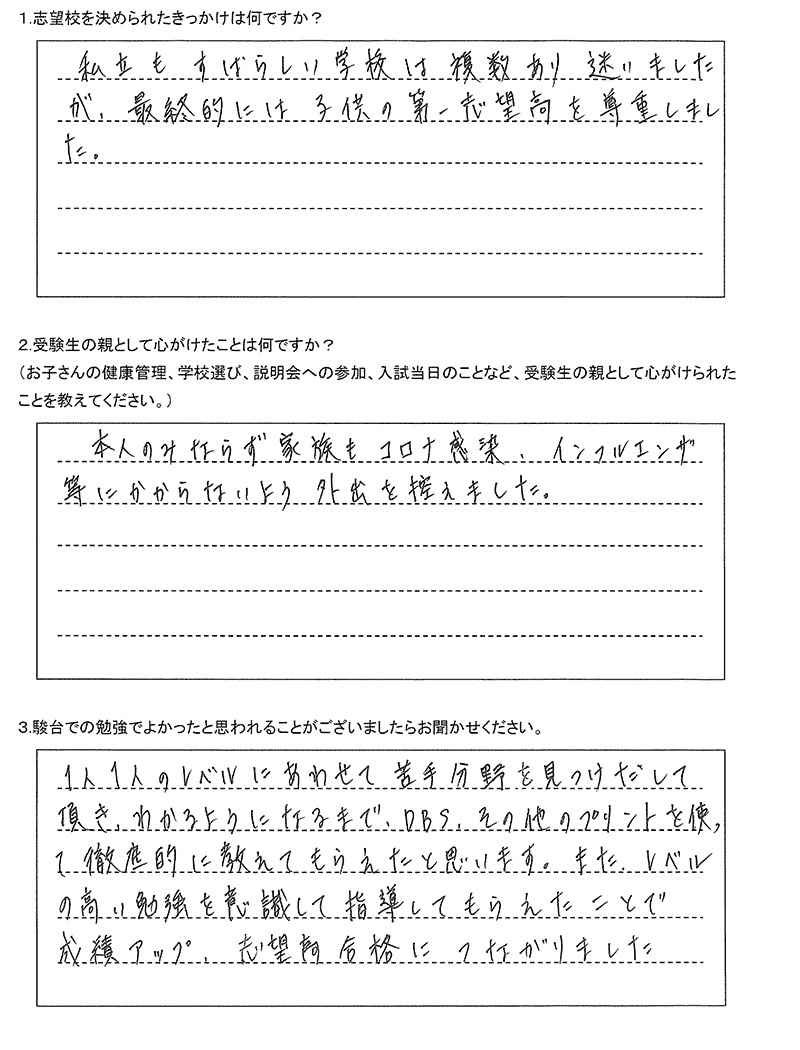 1.志望校を決められたきっかけは何ですか？
私立も すばらしい学校は 複数あり 迷いました
が、最終的には 子供の第一志望高を尊重しまし
た。
2.受験生の親として心がけたことは何ですか？
（お子さんの健康管理、学校選び、説明会への参加、入試当日のことなど、受験生の親として心がけられた
ことを教えてください。）
本人のみならず家族もコロナ感染、インフルエンザ
等にかからないよう 外出を控えました。
3.駿台での勉強でよかったと思われることがございましたらお聞かせください。
1人1人のレベルにあわせて苦手分野を見つけだして
頂き、わかるようになるまで、DBS、その他のプリントを使っ
て徹底的に教えてもらえたと思います。また、レベル
の高い勉強を意識して指導してもらえたことで
成績アップ、志望高合格につながりました